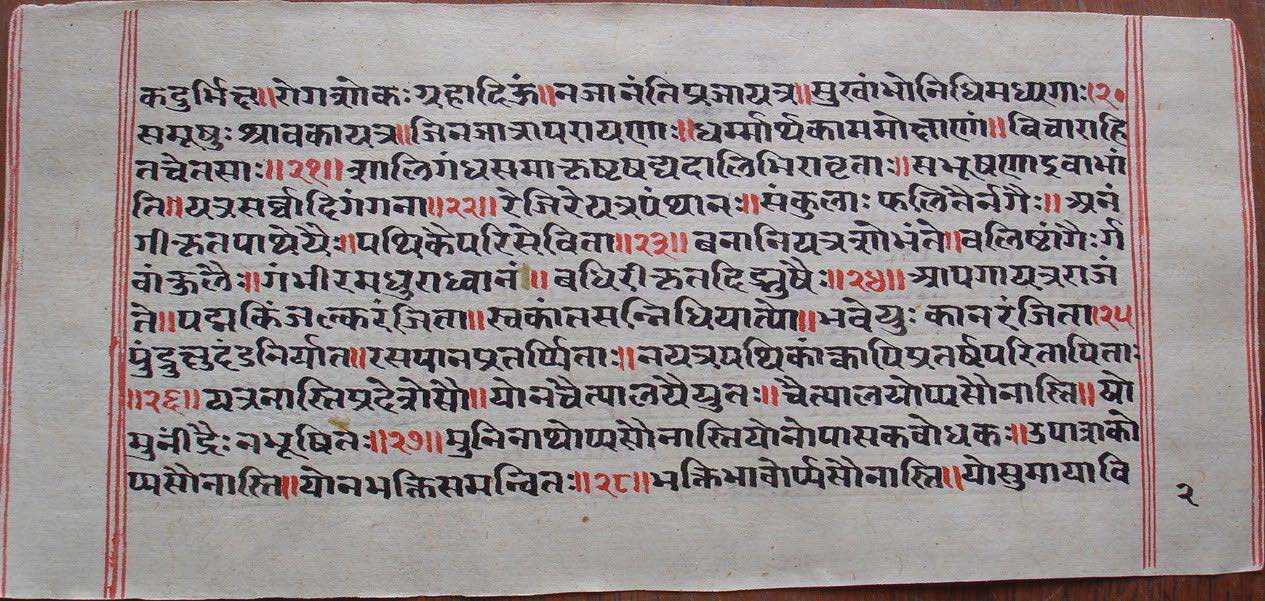 कदुर्भिक्ष॥रोगशोकःग्रहादिकं॥नजानंतिप्रजायत्र॥सुखांभोनिधिमध्यगाः।२०
समूषुःश्रावकायत्र॥जिनजात्रापरायणाः॥धर्मार्थकाममोक्षाणां॥विचाराहि
तचेतसाः॥२१॥शालिगंधसमाकृष्टषट्पदालिभिरावृताः॥सभूषणाइवाभां
ति॥यत्रसर्वादिगंगना॥२२॥रेजिरेयत्रपंथानः॥संकुलाःफलितैर्नगैः॥अनं
गीकृतपाथेयैः॥पथिकैपरिसेविता॥२३॥बनानियत्रशोभंते॥वलिष्टांगैःर्ग
वांकुलैः॥गंभीरमधुराध्वानं॥बधिरीकृतदिङ्मुषैः॥२४॥आपगायत्रराजं
ते॥पद्मकिंजल्करंजिता॥स्वकांतसन्निधियात्यो॥भवेयुःकानरंजिता।२५
पुंड्रेक्षुदंडनिर्यात॥रसपानप्रतर्प्पिताः॥नयत्रपथिकांक्वापिप्रतर्षपरितापिताः
॥२६॥यत्रनास्तिप्रदेशोसौ॥योनचैत्यालयैयुतः॥चैत्यालयोप्यसौनास्ति॥यो
मुनींद्रैःनभूषितः॥२७॥मुनिनाथोप्यसौनास्तियोनोपासकबोधकः॥उपाशको
प्यसौनास्ति॥योनभक्तिसमन्वितः॥२८॥भक्तिभावोर्प्यसौनास्ति॥योसुमायावि
२